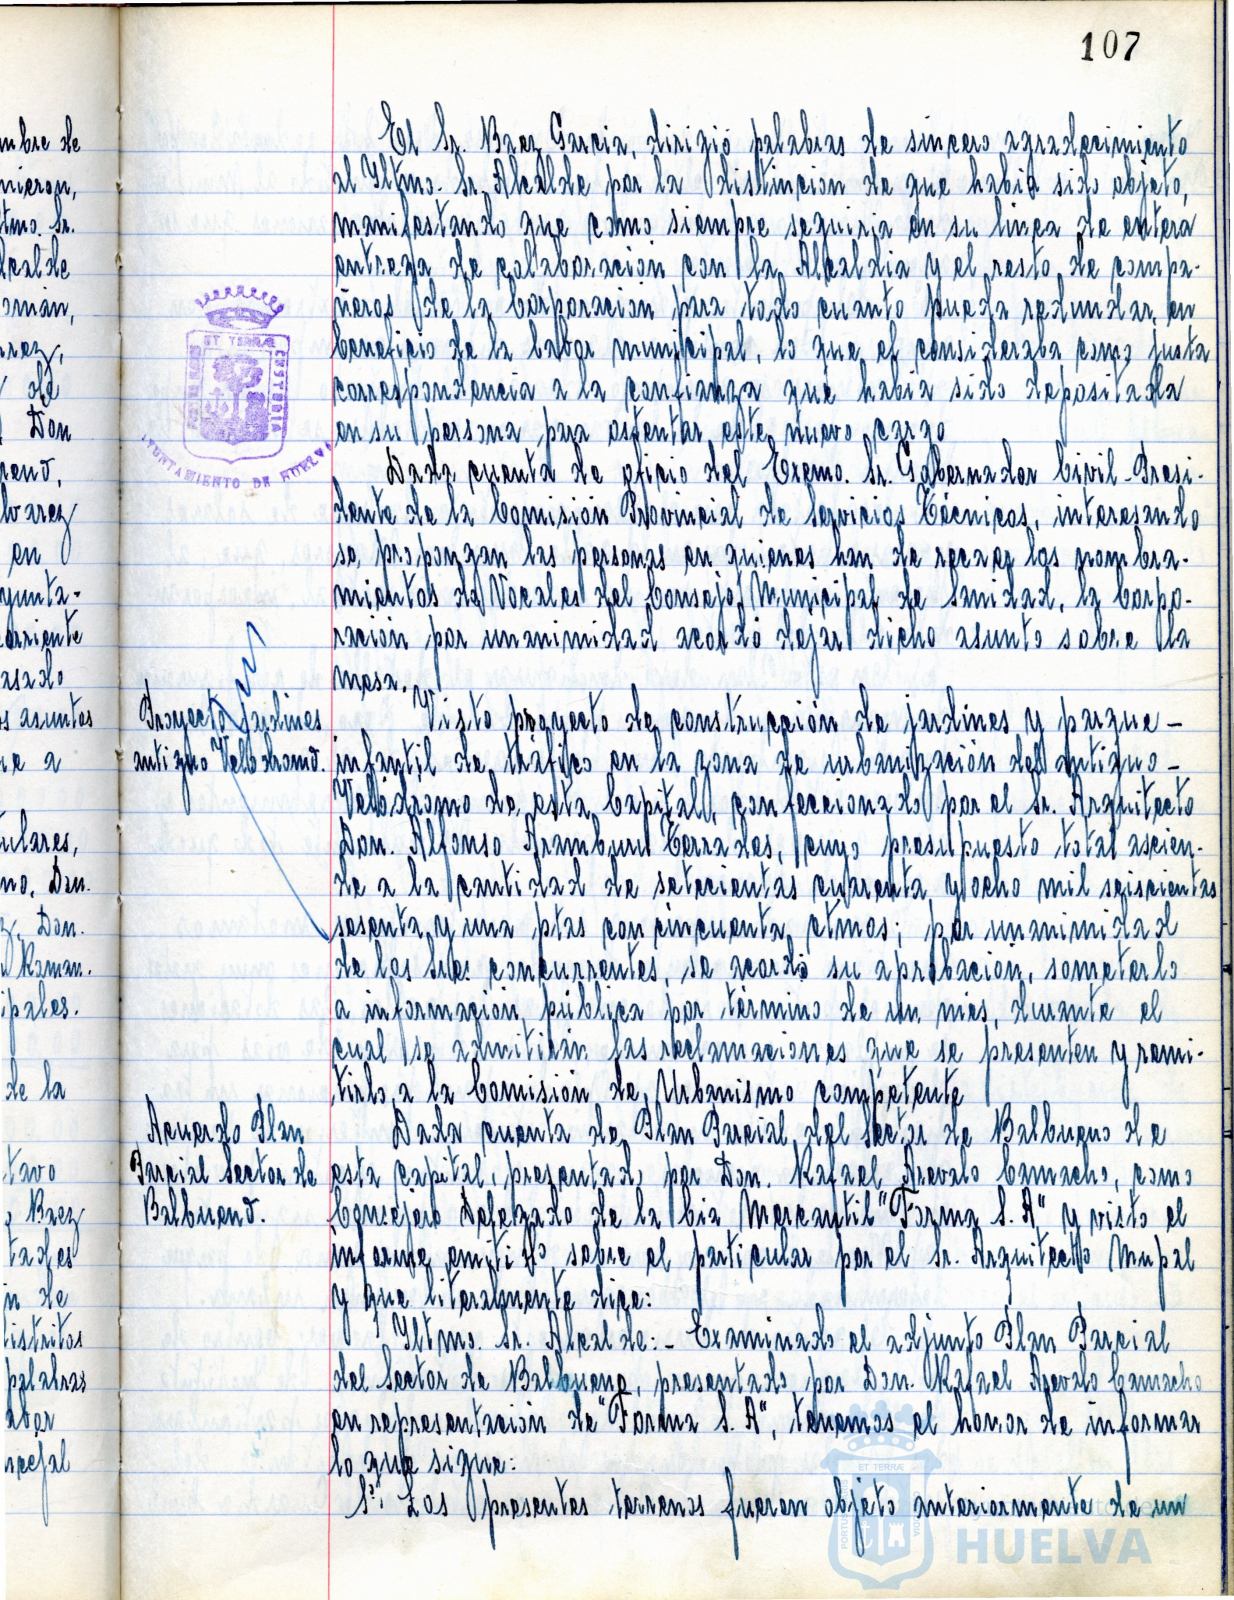 107
El Sr. Baez Garcia, dirigió palabras de sincero agradecimiento
al Yltmo. Sr. Alcalde por la distincion de que habia sido objeto,
manifestando que como siempre seguiria en su linea de entera
entrega de colaboracion con la Alcaldia y el resto de compa-
ñeros de la Corporacion para todo cuanto pueda redundar en
beneficio de la labor municipal, lo que el consideraba como justa
correspondencia a la confianza que habia sido depositada
en su persona para ostentar este nuevo cargo
Dada cuenta de oficio del Excmo. Sr. Gobernador Civil-Presi-
dente de la Comisión Provincial de Servicios Técnicos, interesando
se propongan las personas en quienes han de recaer los nombra-
mientos de Vocales del Consejo Municipal de Sanidad, la Corpo-
ración por unanimidad acordó dejar dicho asunto sobre la
mesa.
Proyecto Jardines
antiguo Velodromo.
Visto proyecto de construcción de jardines y parque -
infantil de tráfico en la zona de urbanización del antiguo -
Velodromo de esta Capital, confeccionado por el Sr. Arquitecto
Don. Alfonso Aramburu Terrades, cuyo presupuesto total ascien-
de a la cantidad de setecientas cuarenta y ocho mil seiscientas
sesenta y una ptas con cincuenta ctmos; por unanimidad
de los Sres. concurrentes, se acordó su aprobacion, someterlo
a información pública por término de un mes, durante el
cual se admitirán las reclamaciones que se presenten y remi-
tirlo a la Comisión de Urbanismo competente
Acuerdo Plan
Parcial Sector de
Balbueno.
Dada cuenta de Plan Parcial del Sector de Balbueno de
esta capital, presentado por Don. Rafael Arevalo Camacho, como
Consejero Delegado de la Cia Mercantil "Forma S. A" y visto el
informe emitido sobre el particular por el Sr. Arquitecto Mupal
y que literalmente dice:
Yltmo. Sr. Alcalde:- Examinado el adjunto Plan Parcial
del Sector de Balbueno, presentado por Don. Rafael Arevalo Camacho
en representación de "Forma S. A", tenemos el honor de informar
lo que sigue:
Los presentes terrenos fueron objeto anteriormente de un
ET TERRÆ
CUSTODIA
AYUNTAMIENTO DE HUELVA
mbre de
nieron,
ltmo. Sr.
lcalde
omán,
rrez,
de
Don
reno,
lvarez
en
yunta-
corriente
asado
os asuntos
a
ulares,
no, Don.
Don.
Roman.
ipales.
de la
tavo
Baez
tades
n de
distritos
palabras
abor
ncejal
ET TERRÆ
HUELVA